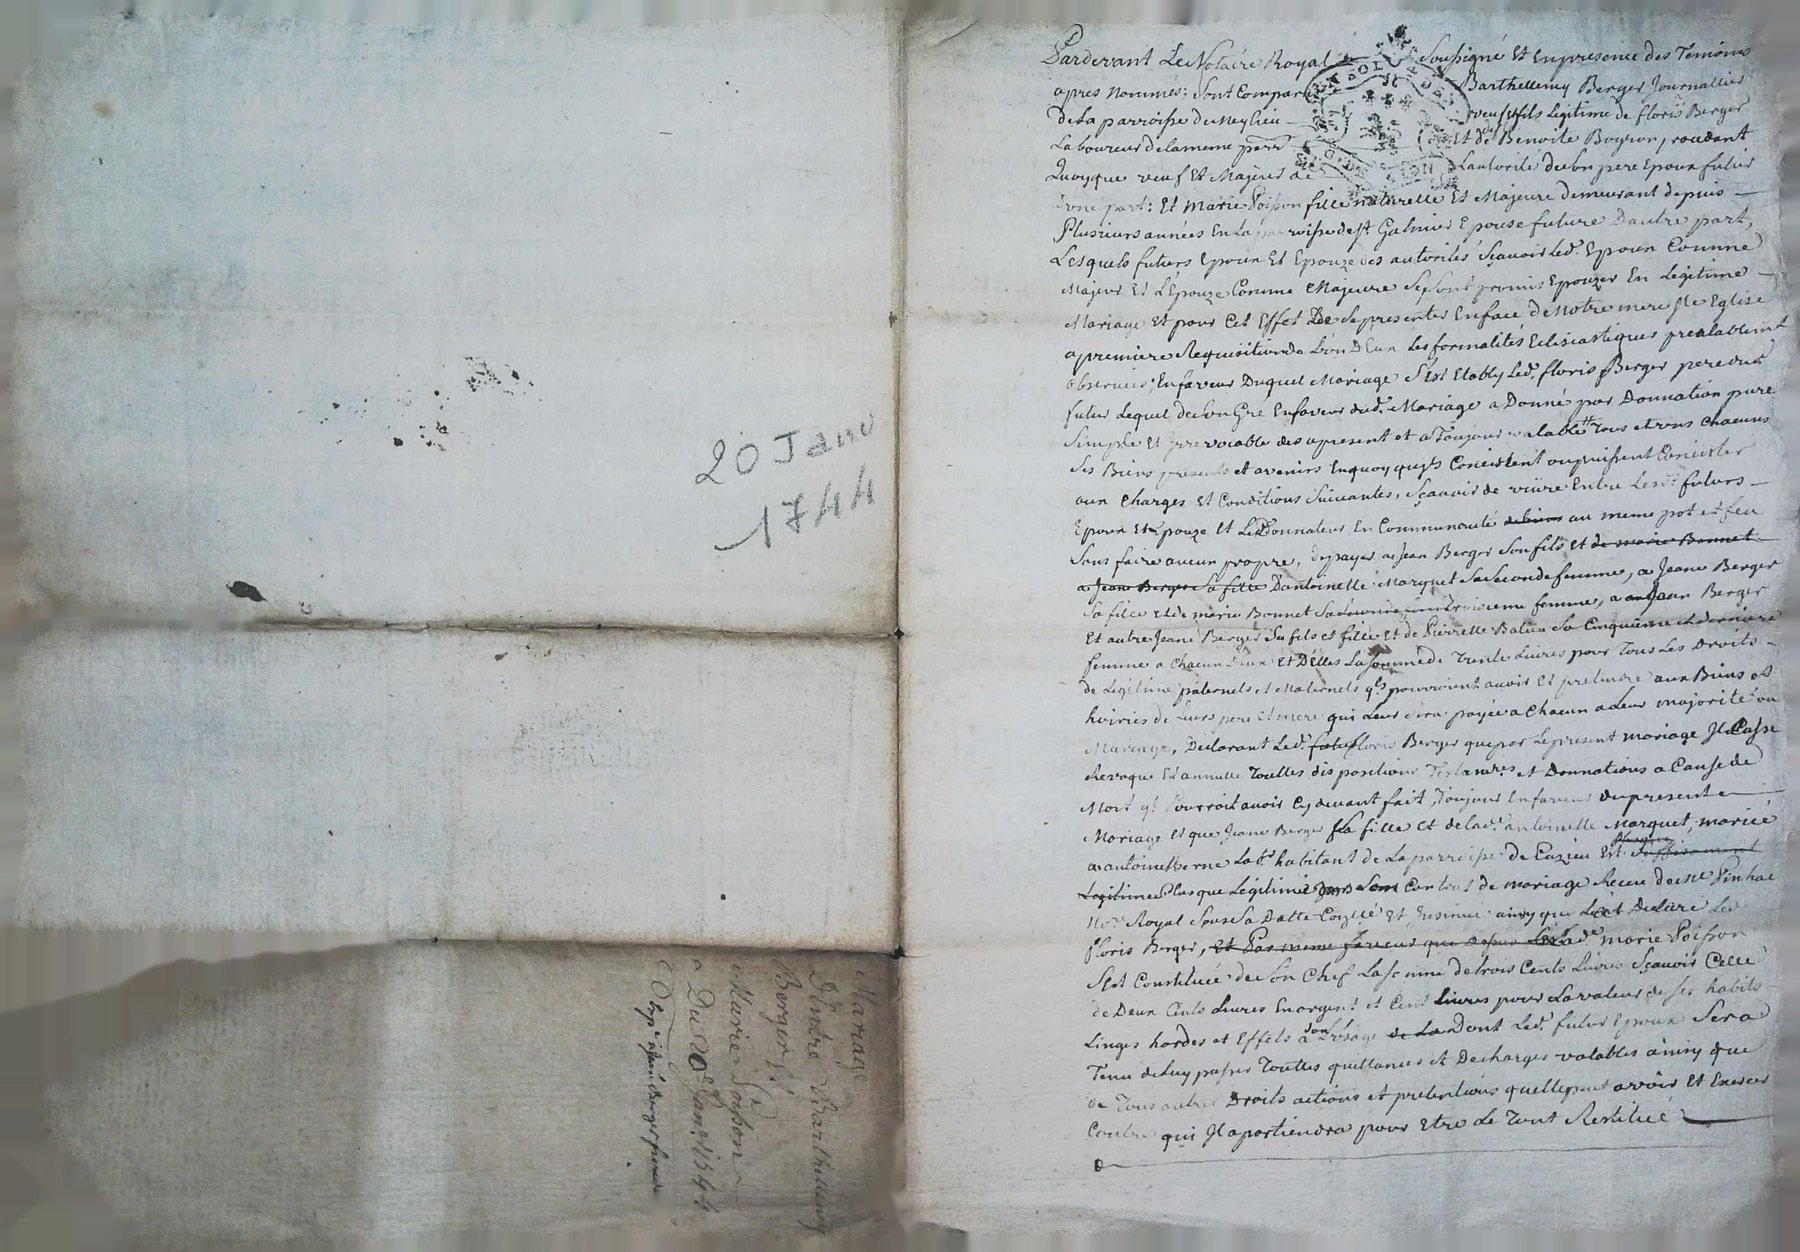 20 Janv
1744
Mariage
Entre Barthellemy
Berger Et
Marie Poisson
Du 20e Janv. 1744
Pardevant Le Notaire Royal Soussigné Et En presence des Temoins
apres Nommés; Sont Comparu Barthellemy Berger Journallier
de La parroisse de veuf et fils Legitime de floris Berger
Laboureur de la meme parr Et de Benoite Boyron,
Quoyque veuf Et Majeur de Lautorité de son pere Epoux futur
D'une part: Et Marie Poisson fille naturelle Et Majeure demeurant depuis
Plusieurs années En La parroisse de St Galmier Epouse future Dautre part,
Lesquels futurs Epoux Et Epouze des autorités Sçavoir Led. Epoux Comme
Majeur Et L'Epouze Comme Majeure Se Sont promis Epouzer En Legitime
Mariage Et pour Cet Effet De Se presenter En face de Notre mere Ste Eglise
a premiere Requisition de Lun D'Eux Les formalités Eclesiastiques prealablement
observées; En faveur Duquel Mariage S'est Etably Led. floris Berger pere dud.
futur Lequel de Son Gré En faveur dud. Mariage a Donné par Donnation pure
Simple et Irrevocable des apresent et a Toujours valable Tous et uns chacuns
Ses Biens presents et avenirs En quoy quils Consistent ou puissent Consister
aux Charges Et Conditions Suivantes, Sçavoir de vivre Entre Lesd. futurs
Epoux Et Epouze Et Le Donnateur En Communauté de biens au meme pot et feu
Sans faire aucun propre, de payer a Jean Berger Son fils et de marie Bonnet
a Jeane Berger Sa fille D'antoinette Marquet Sa Seconde femme, a Jeane Berger
Sa fille Et de marie Bonnet Sa troisieme femme, a Jean Berger
Et autre Jeane Berger Ses fils et fille Et de Pierrette Sa Cinquieme et derniere
femme a Chacun D'Eux Et D'Elles La Somme de Trente Livres pour Tous Les Droits
de Legitime paternels et Maternels qls pourroient avoir Et pretendre aux Biens et
hoiries de Leurs pere Et mere qui Leur Sera payée a Chacun a Leur majorité ou
Mariage, Declarant Led. futur floris Berger que par Le present mariage Il Casse
Revoque Et annulle Touttes dispositions Testamres. et Donnations a Cause de
Mort ql Pourroit avoir Cy devant fait, Toujours En faveur du present
Mariage Et que Jeane Berger Sa fille Et de lad. antoinette Marquet, mariée
a antoine Berne Labr habitant de La parroisse de Cuzieu Est Suffisament
Legitimée Plus que Legitimée Dans Son Contrat de mariage Receu de Me Pinhac
Nore. Royal Sous Sa Datte Controllé Et Insinué ainsy que La Declaré Led
floris Berger, Et Par meme faveur que dessus Lade marie Poisson
S'Est Constituée de Son Chef La Somme de trois Cents Livres Sçavoir Celle
de Deux Cents Livres En argent et Cent Livres pour La valeur de Ses habits
Linges hardes et Effets a Son Usage de La Dont Led. futur Epoux Sera
Tenu de Luy passer Touttes quittances et Decharges valables ainsy que
de Tous autres Droits actions et pretentions quelle peut avoir Et Exercer
Contre qui Il apartiendra pour Etre Le Tout Restitué